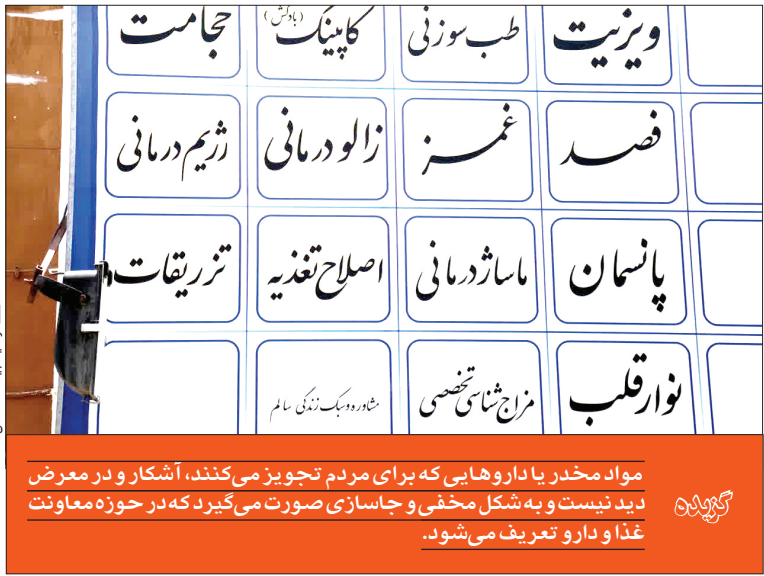 ویزیت
طب سوزنی
کاپینگ (بادکش)
حجامت
فصد
غمز
زالو درمانی
رژیم درمانی
پانسمان
ماساژ درمانی
اصلاح تغذیه
تزریقات
نوار قلب
مزاج شناسی تخصصی
مشاوره و سبک زندگی سالم
گزیده
مواد مخدر یا داروهایی که برای مردم تجویز می‌کنند، آشکار و در معرض
دید نیست و به شکل مخفی و جاسازی صورت می‌گیرد که در حوزه معاونت
غذا و دارو تعریف می‌شود.